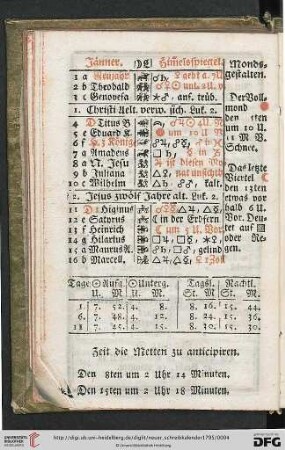 Jänner.
Himelsspiegel
Monds-
gestalten.
1 a Neujahr
2 b Theobald
3 c Genovefa
anf. trüb.
1. Christi Aelt. verw. sich. Luk. 2.
Der Voll-
mond
den 5ten
um 10 U.
11 M. V.
Schnee.
4 D Titus B
5 e Eduard K.
6 f h. 3 Könige
7 g Amadeus
8 a N. Jesu
ist diesen Mo-
9 b Juliana
nat unsichtb
10 c Wilhelm
kalt.
Das letzte
Viertel
den 13ten
etwas vor
halb 6 U.
Vor. Deu-
tet auf
oder Re-
gen.
2. Jesus zwölf Jahre alt. Luk. 2.
11 D 1 Higinus
12 e Satyrus
in der Erdfern.
13 f Heinrich
um 5 U. Vor.
14 g Hilarius
15 a Maurus A.
gelind
16 b Marcell.
Tage Aufg. Unterg. Tagsl. Nachtl.
U. M. U. M. St. M. St. M.
1 7. 52. 4. 8. 8. 16. 15. 44.
6. 7. 48. 4. 12. 8. 24. 15. 36.
11 7. 45. 4. 15. 8. 30. 15. 30.
Zeit die Metten zu anticipiren.
Den 8ten um 2 Uhr 14 Minuten.
Den 15ten um 2 Uhr 18 Minuten.
UNIVERSITÄTS-
BIBLIOTHEK
HEIDELBERG
http://digi.ub.uni-heidelberg.de/diglit/neuer_schreibkalender1795/0004
© Universitätsbibliothek Heidelberg
gefördert durch
DFG